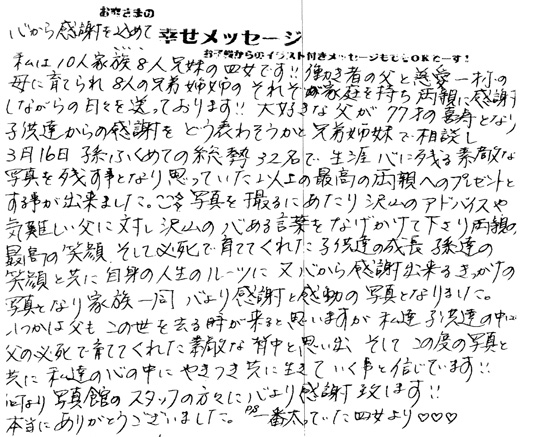 お客さまの
心から感謝を込めて
幸せメッセージ
お子様からのイラスト付きメッセージももちろんOKでーす!
私は10人家族8人兄妹の四女です!! 働き者の父と慈愛一杯の
母に育てられ8人の兄弟姉妹のそれぞれが家庭を持ち両親に感謝
しながらの日々を送っております!! 大好きな父が77才の喜寿となり
子供達からの感謝をどう表わそうかと兄弟姉妹で相談し
3月16日孫ふくめての総勢32名で生涯心に残る素敵な
写真を残す事となり思っていた以上の最高の両親へのプレゼントと
する事が出来ました。写真を撮るにあたり沢山のアドバイスや
気難しい父に対し沢山の心ある言葉をなげかけて下さり両親の
最高の笑顔、そして必死で育ててくれた子供達の成長孫達の
笑顔と共に自身の人生のルーツに又心から感謝出来るきっかけの
写真となり家族一同心より感謝と感動の写真となりました。
いつかは父もこの世を去る時が来ると思いますが私達子供達の中に
父の必死で育ててくれた素敵な背中と思い出そしてこの度の写真と
共に私達の心の中にやきつき共に生きていく事と信じています!!
写真館のスタッフの方々に心より感謝致します!!
本当にありがとうございました。PS 一番太っていた四女より♡♡♡